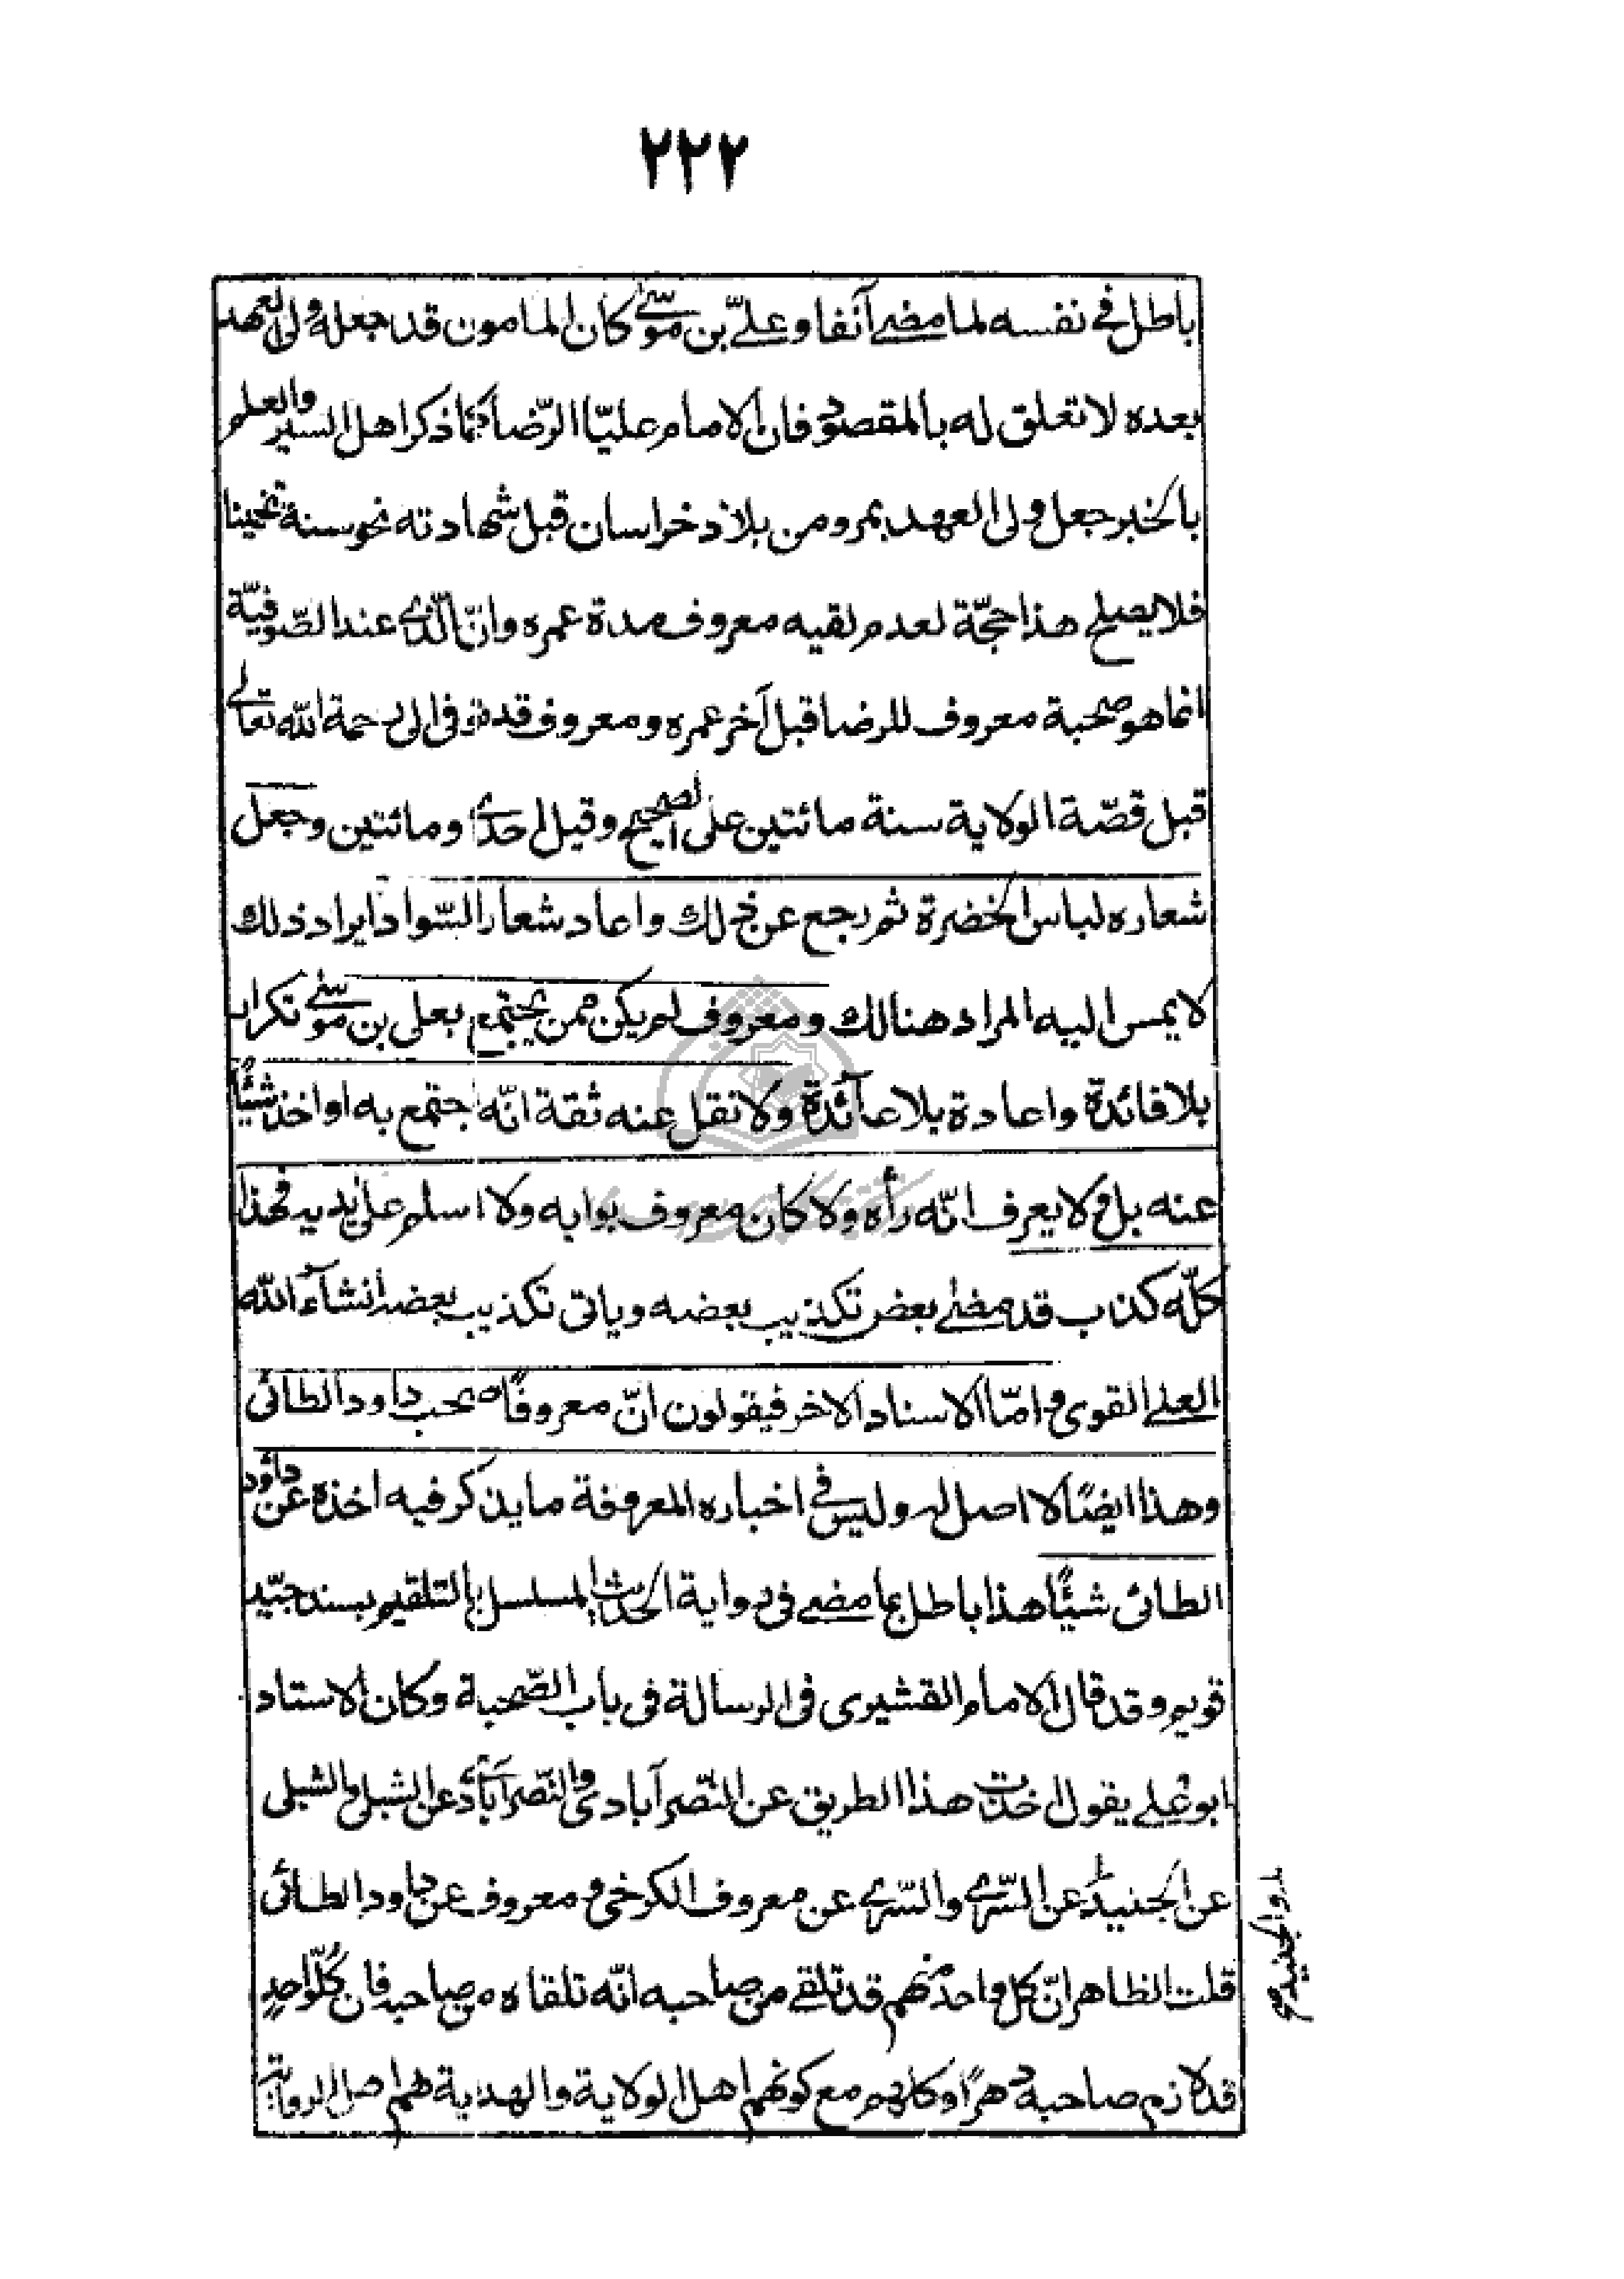 ٢٢٢
باطل في نفسه لما مضى آنفا وعلىّ بن موسى كان المامون قد جعله ولى العهد
بعده لا تعلق له بالمقصود فان الامام عليّا الرّضا كما ذكر اهل السير والعلم
بالخبر جعل ولى العهد بمرو من بلاد خراسان قبل شهادته نحو سنة تخمينا
فلا يصلح هذا حجّة لعدم لقيه معروف مدة عمره وانّ الّذى عند الصّوفيّة
انما هو صحبة معروف للرضا قبل آخر عمره ومعروف قد توفى الى رحمة الله تعالى
قبل قصّة الولاية سنة مائتين على الصحيح وقيل احدى ومائتين وجعل
شعاره لباس الخضرة ثم رجع عن ذلك واعاد شعار السّواد ايراد ذلك
لا يمس اليه المراد هنالك ومعروف لم يكن ممن يجتمع بعلى بن موسى تكرار
بلا فائدة واعادة بلا عائدة ولا نقل عنه ثقة انّه اجتمع به او اخذ شيئًا
عنه بل ولا يعرف انّه رأه ولا كان معروف بوابه ولا اسلم على يديه فهذا
كلّه كذب قد مضى بعض تكذيب بعضه وياتى تكذيب بعضه انشآء الله
العلى القوى وامّا الاسناد الاخر فيقولون انّ معروفًا صحب داود الطائى
وهذا ايضًا لا اصل له وليس في اخباره المعروفة ما يذكر فيه اخذه عن داؤد
الطائى شيئًا هذا باطل بما مضى فى رواية الحديث المسلسل بالتلقيم بسند جيّد
قويم وقد قال الامام القشيرى فى الرسالة فى باب الصّحبة وكان الاستاد
ابو على يقول اخذت هذا الطريق عن النّصرآبادى والنّصرآبادى عن الشبلى والشبلى
عن الجنيد عن السّرى والسّرى عن معروف الكرخى ومعروف عن داود الطائى
والجنيد صح
قلت الظاهر انّ كل واحد منهم قد تلقى من صاحبه انّه تلقاه من صاحبه فان كُلّ واحدٍ
قد لازم صاحبه دهرًا وكلهم مع كونهم اهل الولاية والهداية هم اصل الرواية